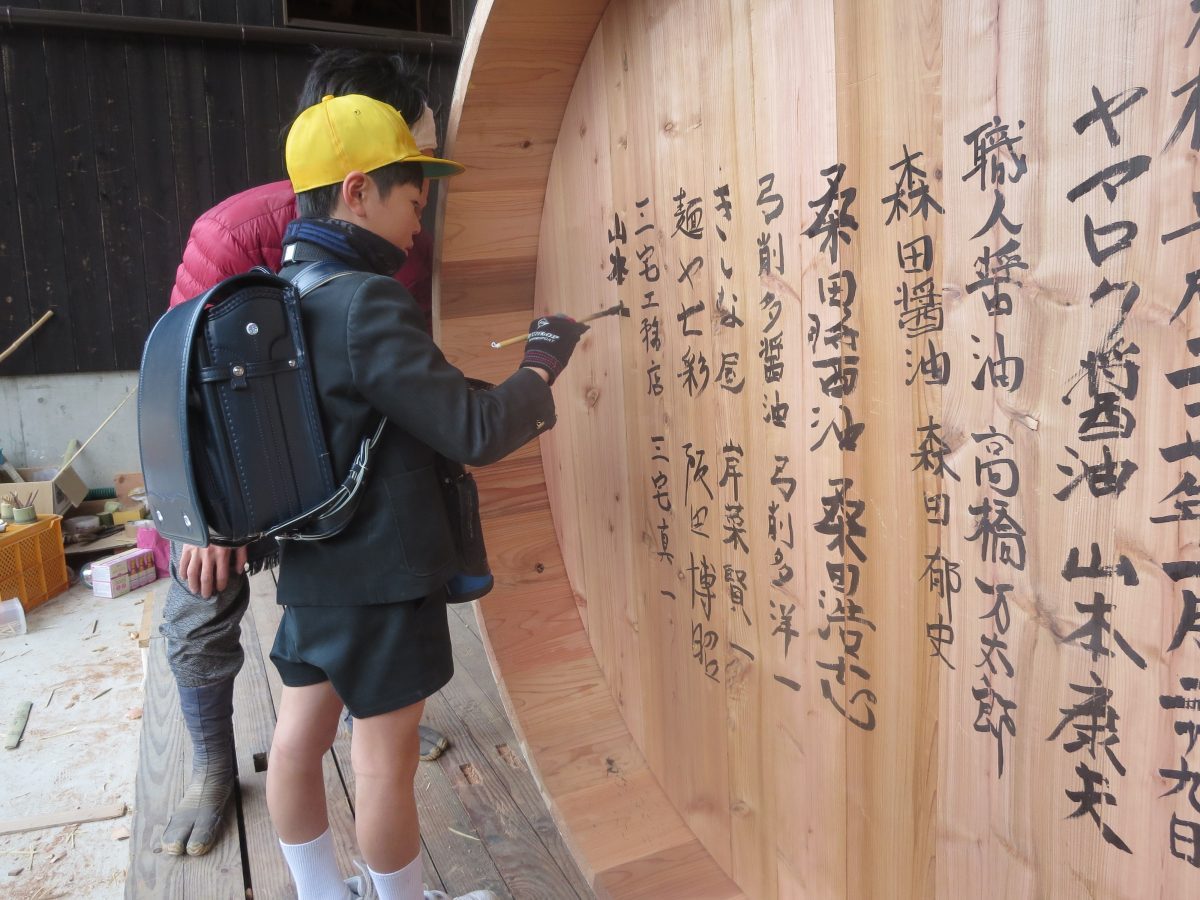 二十七年一月二十九日
ヤマロク醤油 山本康夫
職人醤油 高橋万太郎
森田醤油 森田郁史
桑田醤油 桑田浩志
弓削多醤油 弓削多洋一
きしな屋 岸菜賢一
麺や七彩 阪田博昭
三宅工務店 三宅真一
山本